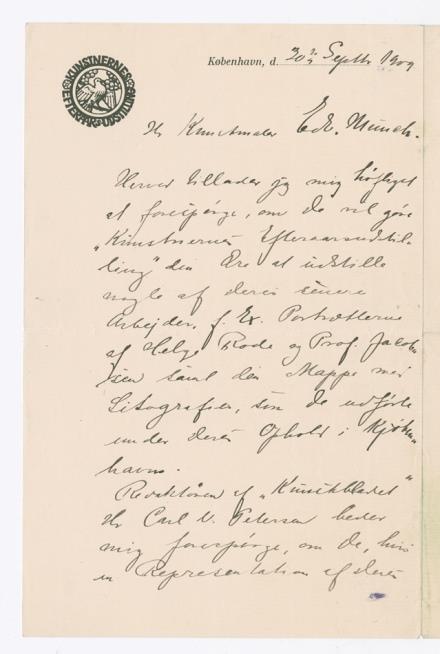 KUNSTNERNES EFTERAARSUDSTILLING
København, d. 30 Septbr 1909
Hr Kunstmaler Edv. Munch.
Herved tillader jeg mig høfligst
at forespørge, om De vil gøre
„Kunstnernes Efteraarsudstil-
ling" den Ære at udstille
nogle af deres senere
Arbejder, f. Ex. Portrætterne
af Helge Rode og Prof. Jacob-
sen samt den Mappe med
Litografier, som De udførte
under deres Ophold i Kjøben-
havn.
Redaktøren af „Kunstbladet"
Hr Carl V. Petersen beder
mig forespørge, om De, hvis
en Repræsentation af deres